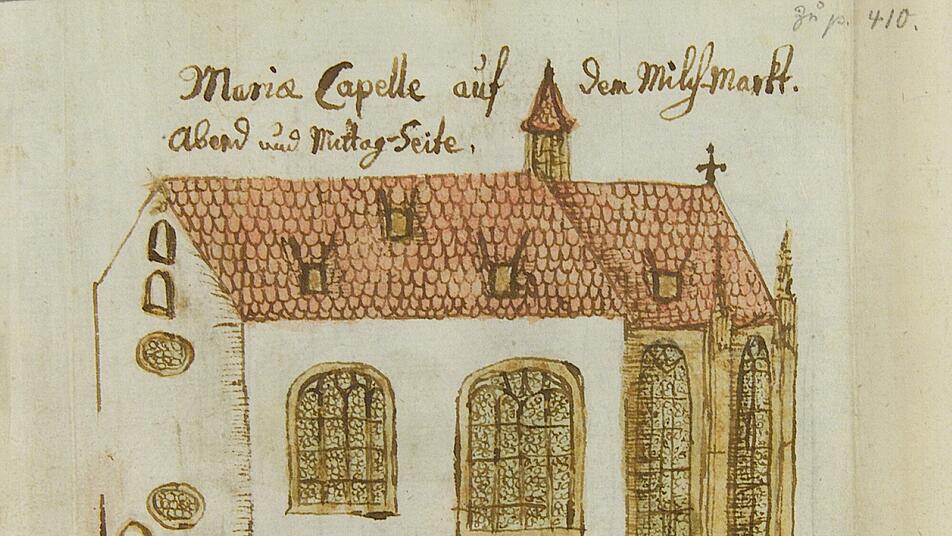 zu p. 410.
Mariæ Capelle auf dem Milch-Markt.
Abend und Mittag-Seite.